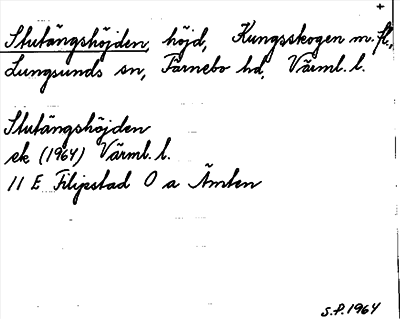 +
Stutängshöjden, höjd, Kungsskogen m. fl.,
Lungsunds sn, Färnebo hd, Värml. l.
Stutängshöjden
ek (1964) Värml. l.
11 E Filipstad O a Ämten
S.P. 1964